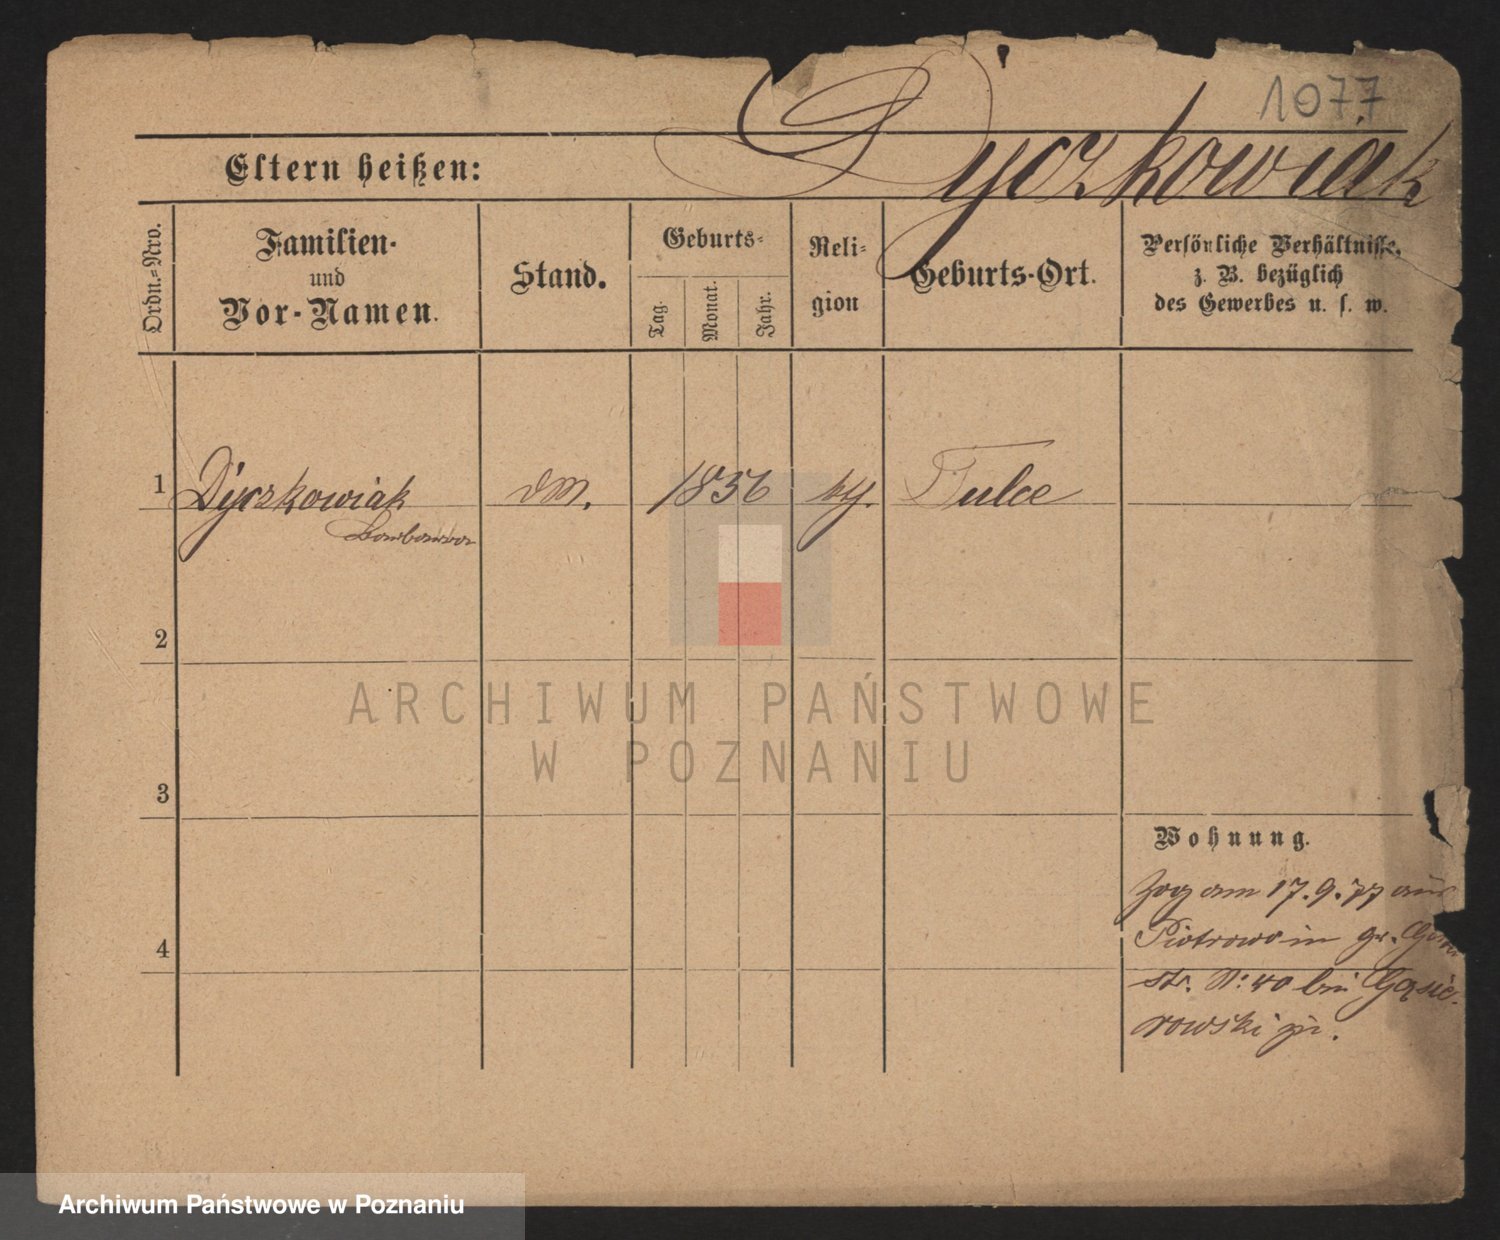 1077
Dyczkowiak
Eltern heißen:
Ordn.-Nro.
Familien-
und
Vor-Namen.
Stand.
Geburts-
Tag.
Monat.
Jahr.
Reli-
gion
Geburts-Ort.
Persönliche Verhältnisse,
z. B. bezüglich
des Gewerbes u. s. w.
1 Dyczkowiak DM. 1856 kth. Tulce
Barbara
2
3
4
Wohnung.
Zog am 17.9.77 aus
Piotrowo in gr. Gerber
str. N: 40 bei Gąsie-
rowski
ARCHIWUM PAŃSTWOWE
W POZNANIU
Archiwum Państwowe w Poznaniu